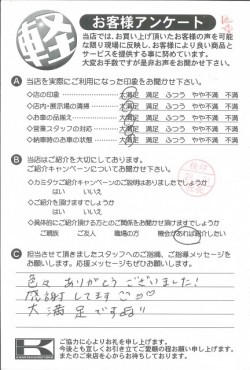 軽
お客様アンケート
当店では、お買い上げ頂いたお客様の声を可能な
な限り現場に反映し、お客様により良い商品と
サービスを提供する事に努めています。
大変お手数ですが是非お声をお聞かせ下さい。
A 当店を実際にご利用になった印象をお聞かせ下さい。
◇店の印象 大満足 満足 ふつう やや不満 不満
◇店内・展示場の清掃 大満足 満足 ふつう やや不満 不満
◇お車の品揃え 大満足 満足 ふつう やや不満 不満
◇営業スタッフの対応 大満足 満足 ふつう やや不満 不満
◇納車時のお車の状態 大満足 満足 ふつう やや不満 不満
B 当店はご紹介を大切にしております。
ご紹介キャンペーンについてお聞かせ下さい。
◇カミタケご紹介キャンペーンのご説明はありましたでしょうか
はい いいえ
◇ご紹介を頂けますでしょうか
はい いいえ
◇具体的にご紹介頂ける方とのご関係をお聞かせ頂けますでしょうか
ご親族 ご友人 職場の方 機会があれば紹介したい
C 担当させて頂きましたスタッフへのご指摘、ご指導メッセージを
お願いします。応援メッセージもぜひお願いします。
色々ありがとうございました!
感謝してます
大満足です
K
ご協力に心よりお礼を申し上げます。
今後とも宜しくお引き立てご愛顧の程お願い申し上げます。
またのご来店を心からお待ちしております。